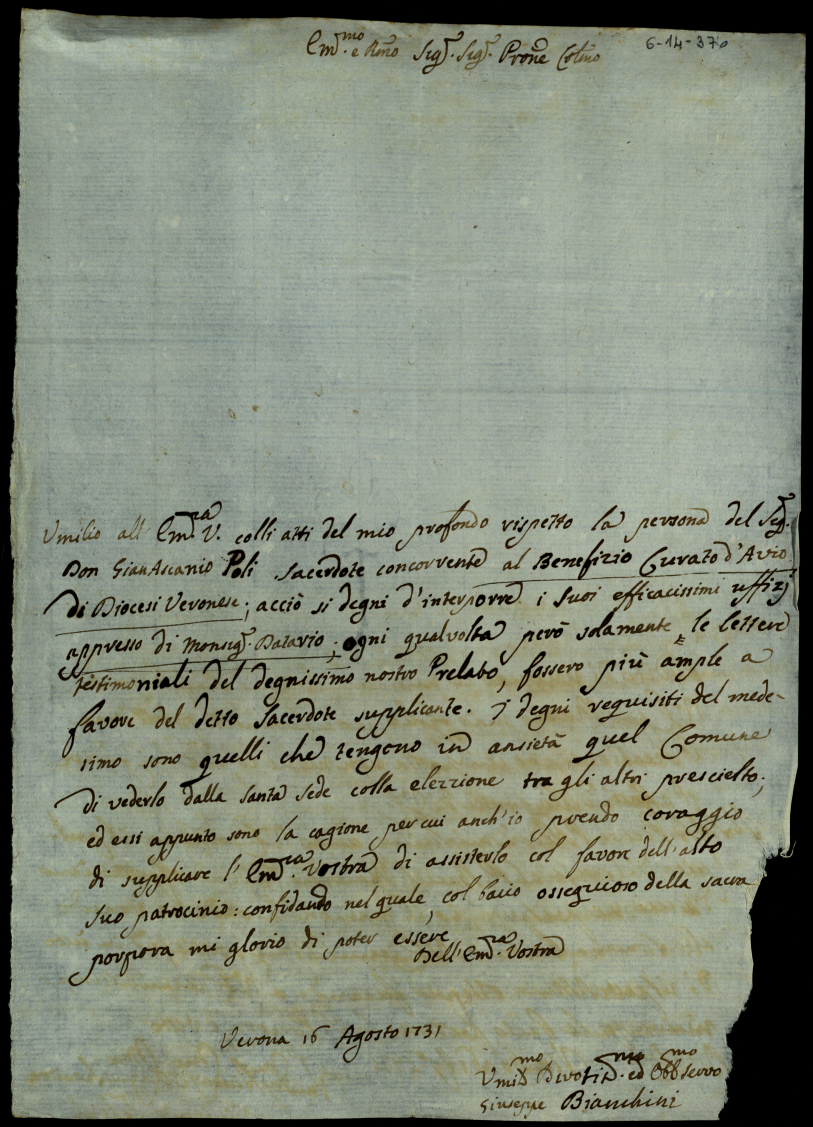 Em.mo e Rmo Sig.r Sig.r Prone Colmo
6-14-370
Umilio all' Em.za V. colli atti del mio profondo rispetto la persona del Sig.r
Don GianAscanio Poli Sacerdote concorrente al Benefizio Curato d'Avio
di Diocesi Veronese; acciò si degni d'interporre i suoi efficacissimi uffizj
appresso di Monsig.r Datario; ogni qualvolta però solamente le lettere
testimoniali del degnissimo nostro Prelato, fossero più ample a
favore del detto Sacerdote supplicante. I degni requisiti del mede-
simo sono quelli che tengono in ansietà quel Comune
di vederlo dalla santa sede colla elezzione tra gli altri prescielto;
ed essi appunto sono la cagione per cui anch'io prendo coraggio
di supplicare l'Em.za Vostra di assisterlo col favore dell'alto
suo patrocinio: confidando nel quale, col bacio ossequioso della sacra
porpora mi glorio di poter essere
Dell'Em.za Vostra
Verona 16 Agosto 1731
Umil.mo Divotis.mo ed Obb.mo Servo
Giuseppe Bianchini